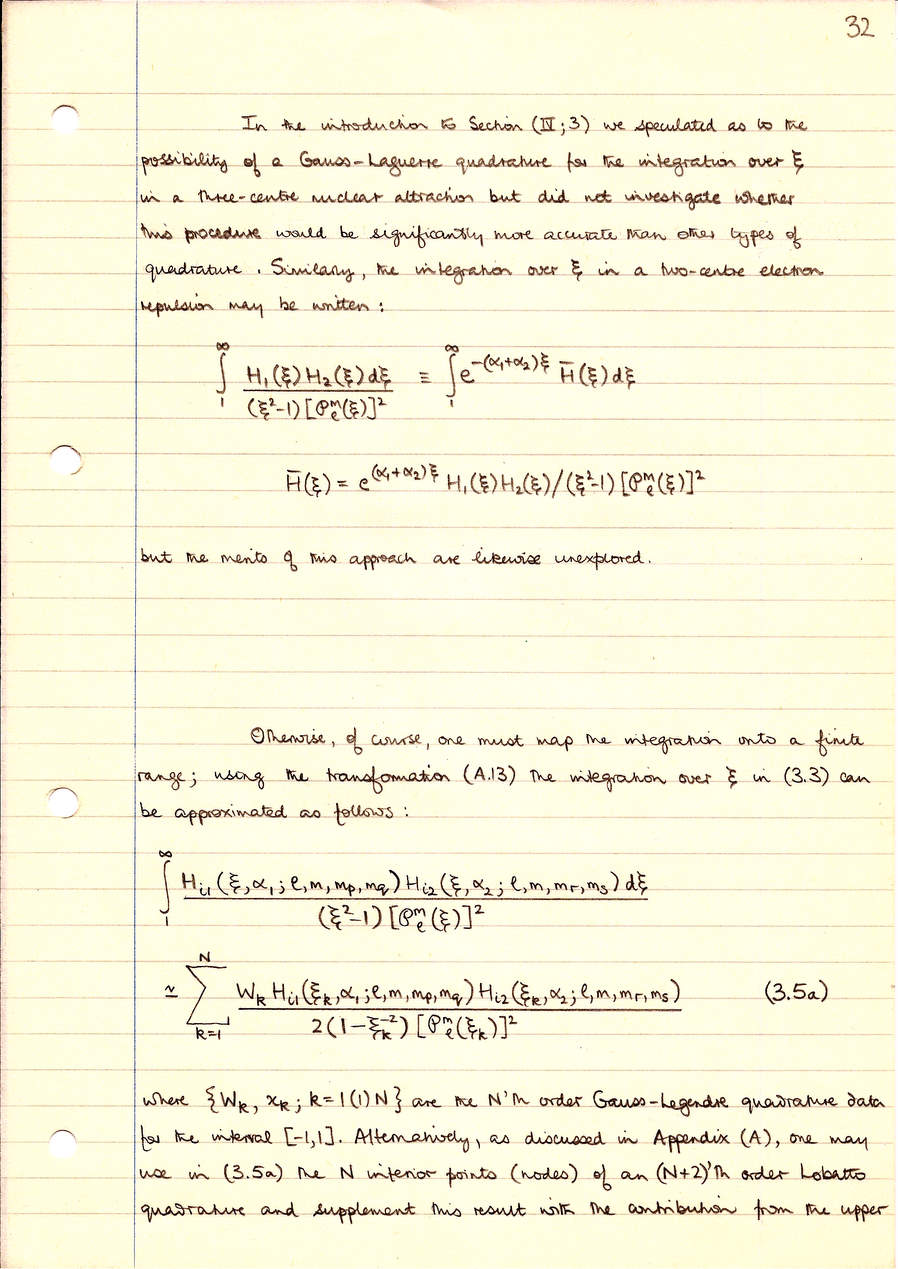 32
In the introduction to Section (IV;3) we speculated as to the
possibility of a Gauss-Laguerre quadrature for the integration over ξ
in a three-centre nuclear attraction but did not investigate whether
this procedure would be significantly more accurate than other types of
quadrature. Similarly, the integration over ξ in a two-centre electron
repulsion may be written :
∫₁^∞ H₁(ξ) H₂(ξ) dξ / (ξ²-1) [𝒫ₗᵐ(ξ)]² ≡ ∫₁^∞ e^{-(α₁+α₂)ξ} H̄(ξ) dξ
H̄(ξ) = e^{(α₁+α₂)ξ} H₁(ξ) H₂(ξ) / (ξ²-1) [𝒫ₗᵐ(ξ)]²
but the merits of this approach are likewise unexplored.
Otherwise, of course, one must map the integration onto a finite
range; using the transformation (A.13) the integration over ξ in (3.3) can
be approximated as follows :
∫₁^∞ H_{i1}(ξ, α₁; ℓ, m, m_p, m_q) H_{i2}(ξ, α₂; ℓ, m, m_r, m_s) dξ / (ξ²-1) [𝒫ₗᵐ(ξ)]²
≃ ∑_{k=1}^{N} W_k H_{i1}(ξ_k, α₁; ℓ, m, m_p, m_q) H_{i2}(ξ_k, α₂; ℓ, m, m_r, m_s) / 2(1-ξ_k^{-2}) [𝒫ₗᵐ(ξ_k)]² (3.5a)
where {W_k, x_k; k=1(1)N} are the N'th order Gauss-Legendre quadrature data
for the interval [-1,1]. Alternatively, as discussed in Appendix (A), one may
use in (3.5a) the N interior points (nodes) of an (N+2)'th order Lobatto
quadrature and supplement this result with the contribution from the upper